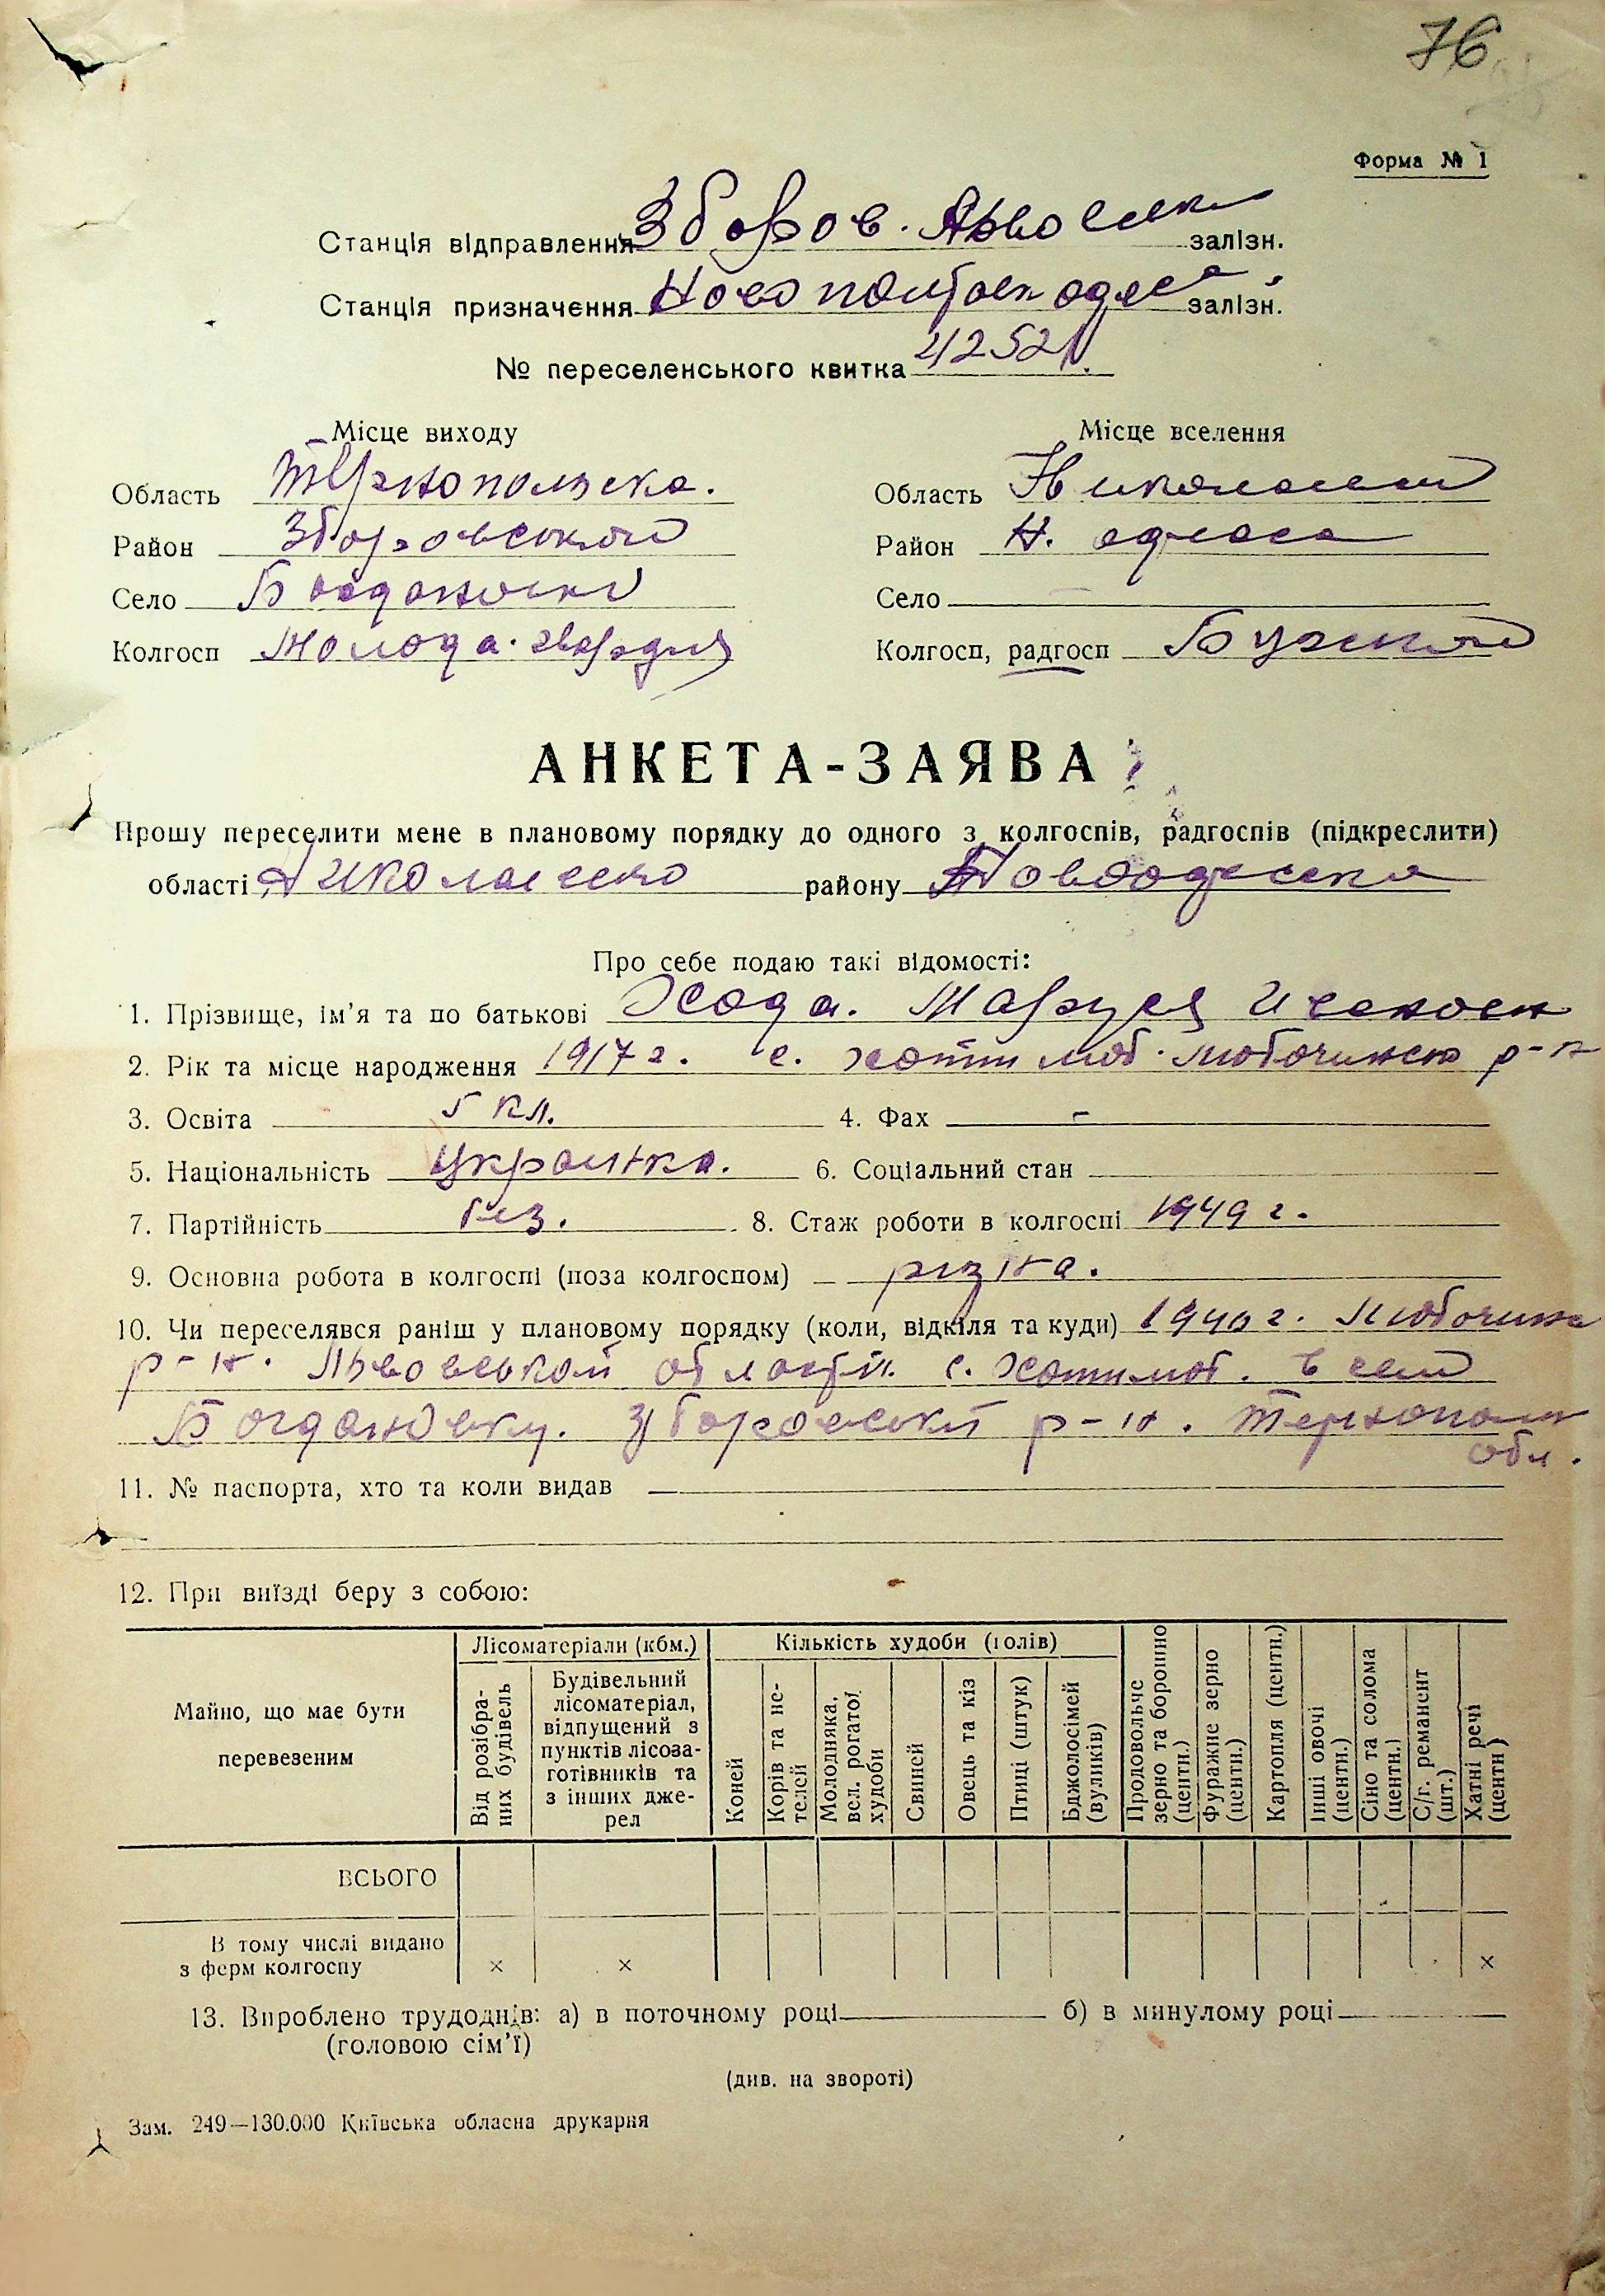 76
Форма № 1
Станція відправлення Зборов. Львовска залізн.
Станція призначення одеса залізн.
№ переселенського квитка 42521.
Місце виходу Місце вселення
Область Тернопольска. Область Николаевский
Район Зборовський Район Н. одеса
Село Богдановки Село
Колгосп Молода. гвардия Колгосп, радгосп Бузский
АНКЕТА-ЗАЯВА
Прошу переселити мене в плановому порядку до одного з колгоспів, радгоспів (підкреслити)
області Николаевско району Новоодеска
Про себе подаю такі відомості:
1. Прізвище, ім’я та по батькові Хода. Маруся
2. Рік та місце народження 1917 г. с. р-н
3. Освіта 5 кл. 4. Фах -
5. Національність Украинка. 6. Соціальний стан
7. Партійність без. 8. Стаж роботи в колгоспі 1949 г.
9. Основна робота в колгоспі (поза колгоспом) різна.
10. Чи переселявся раніш у плановому порядку (коли, відкіля та куди)
р-н. Львовськой области. с. в село
Богдановку. Зборовский р-н. Тернополь
обл.
11. № паспорта, хто та коли видав
12. При виїзді беру з собою:
Майно, що має бути перевезеним
Лісоматеріали (кбм.)
Від розібраних будівель
Будівельний лісоматеріал, відпущений з пунктів лісозаготівників та з інших джерел
Кількість худоби (голів)
Коней
Корів та нетелей
Молодняка, вел. рогатої худоби
Свиней
Овець та кіз
Птиці (штук)
Бджолосімей (вуликів)
Продовольче зерно та борошно (центн.)
Фуражне зерно (центн.)
Картопля (центн.)
Інші овочі (центн.)
Сіно та солома (центн.)
С/г. реманент (шт.)
Хатні речі (центн)
ВСЬОГО
В тому числі видано
з ферм колгоспу × × ×
13. Вироблено трудоднів: а) в поточному році б) в минулому році
(головою сім’ї)
(див. на звороті)
Зам. 249—130.000 Київська обласна друкарня